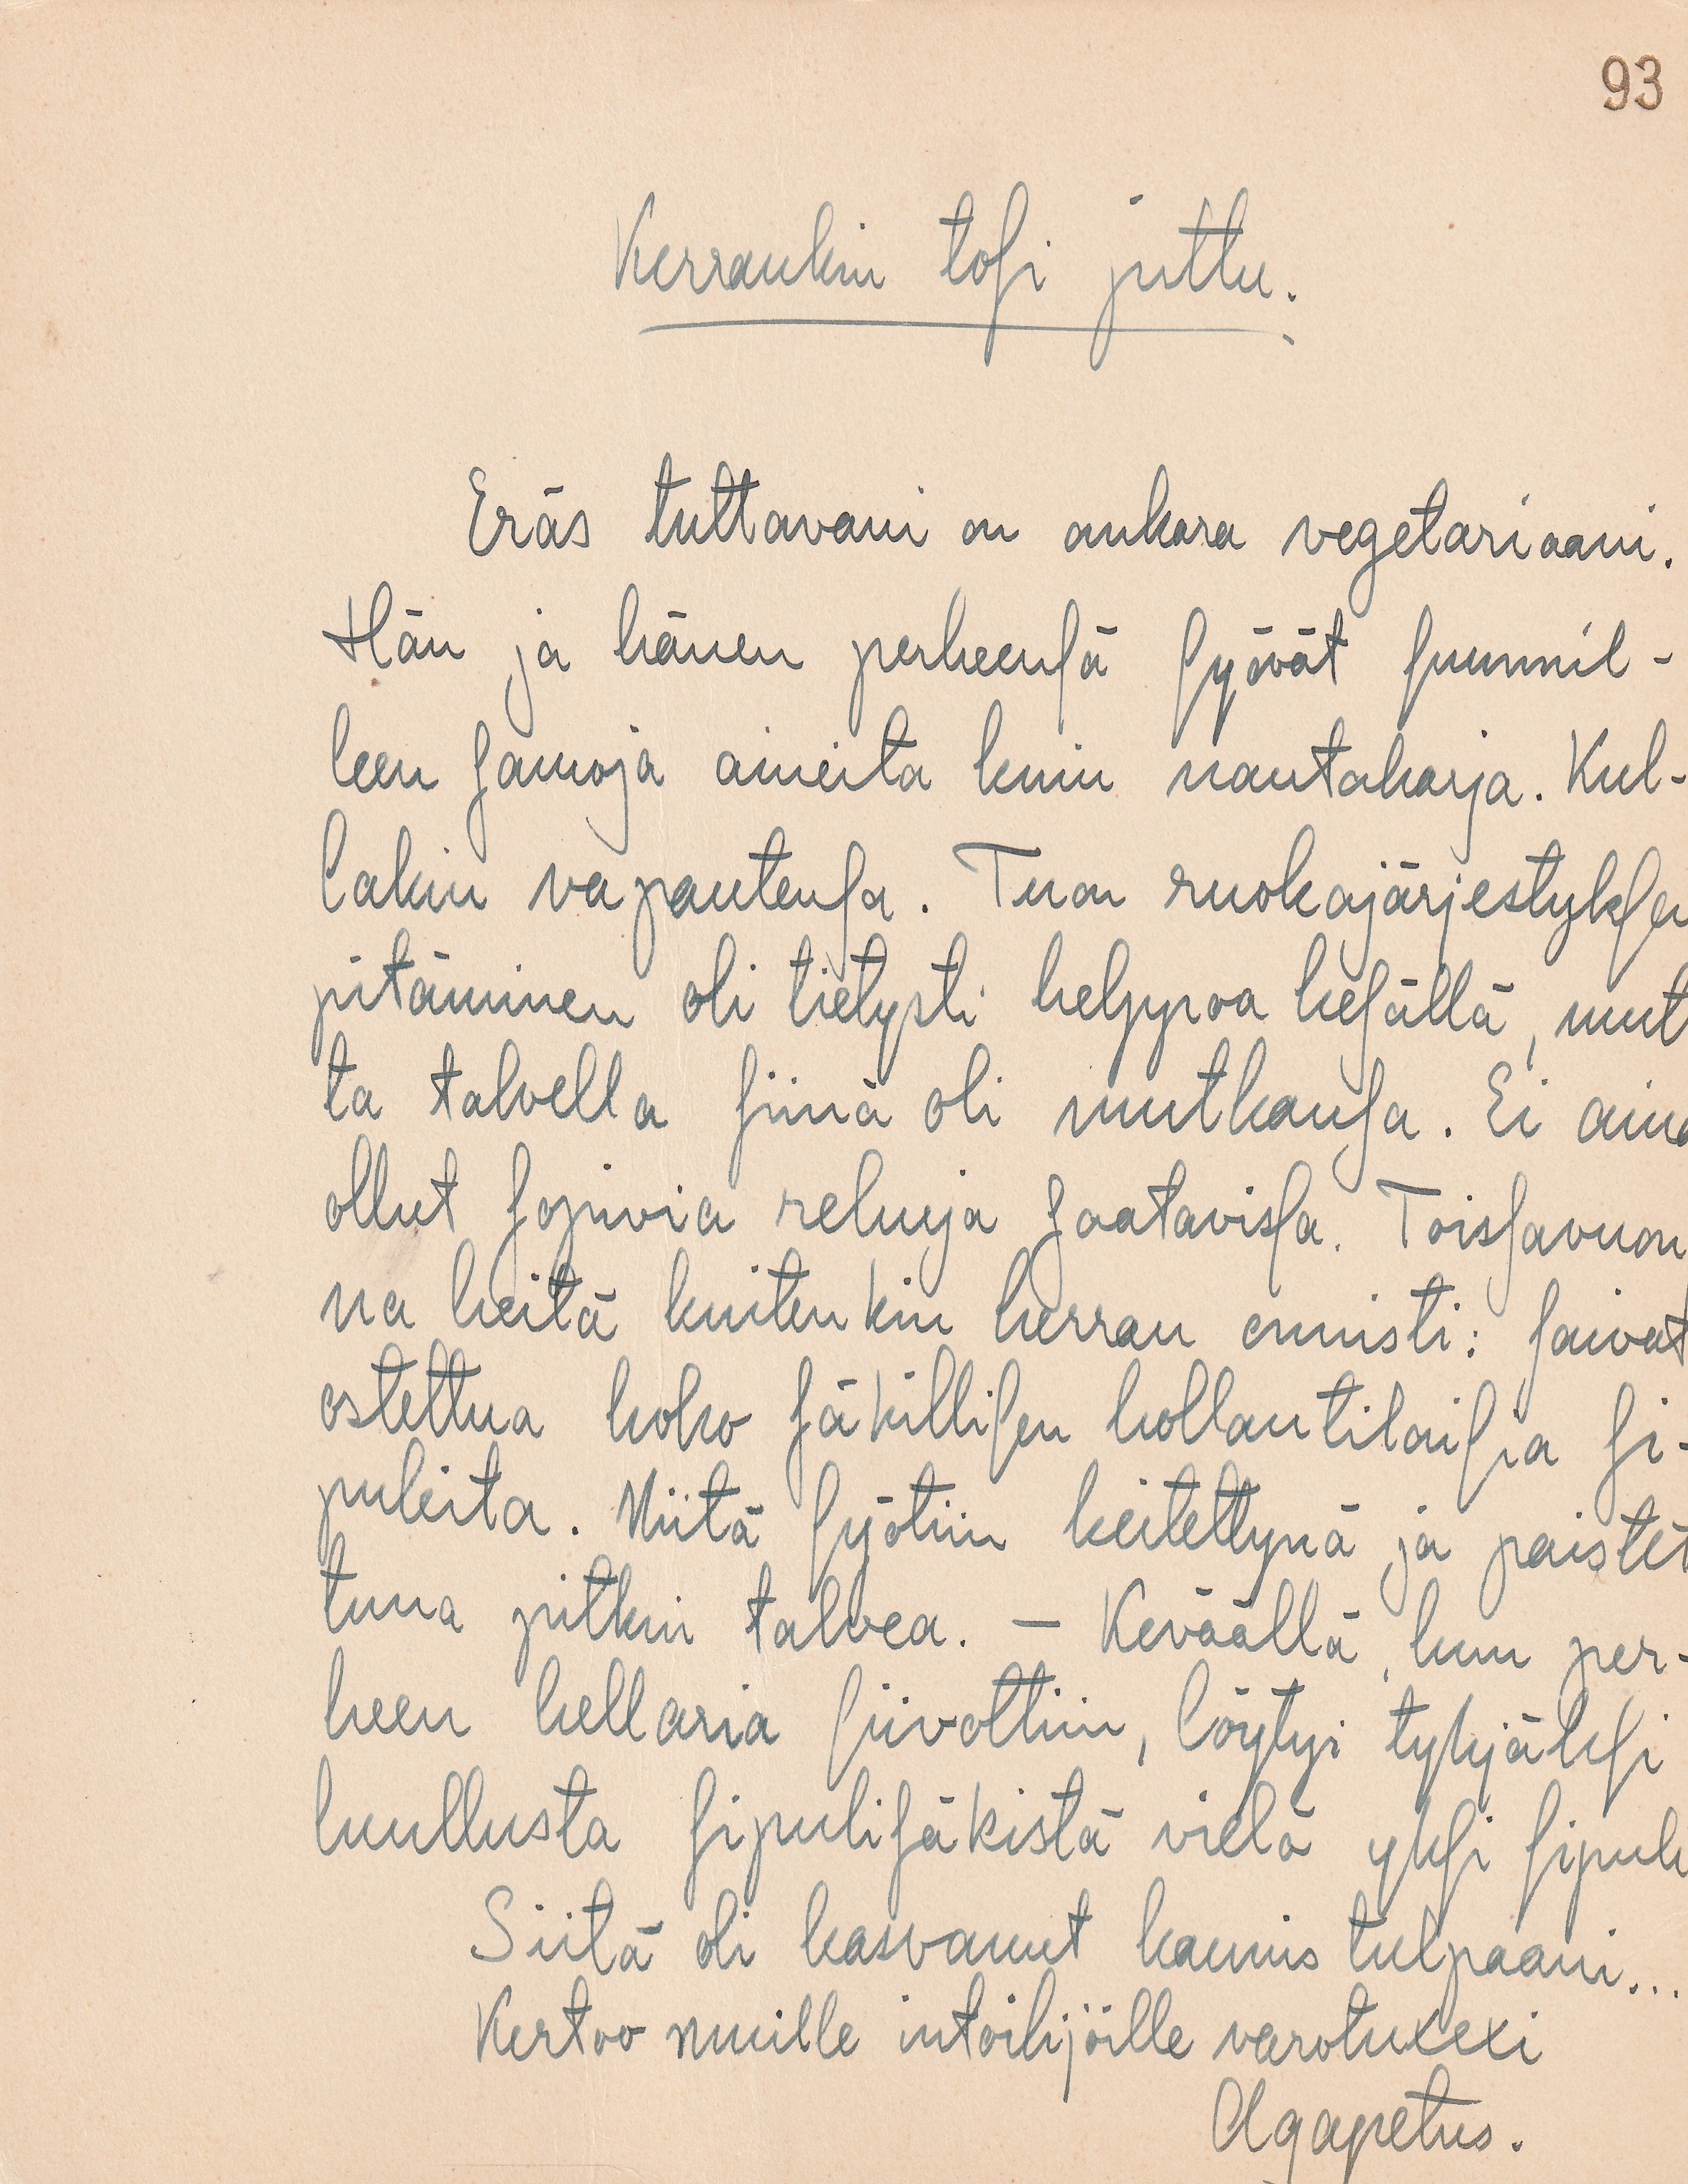 93
Kerrankin tosi juttu.
Eräs tuttavani on ankara vegetariaani.
Hän ja hänen perheensä syövät suunnil-
leen samoja aineita kuin nautakarja. Kul-
lakin vapautensa. Tuon ruokajärjestyksen
pitäminen oli tietysti helppoa kesällä, mut
ta talvella siinä oli mutkansa. Ei aina
ollut sopivia rehuja saatavissa. Toissavuon
na heitä kuitenkin herran onnisti: saivat
ostettua koko säkillisen hollantilaisia si-
puleita. Niitä syötiin keitettynä ja paistet
tuna pitkin talvea. – Keväällä, kun per-
heen kellaria siivottiin, löytyi tyhjäksi
luullusta sipulisäkistä vielä yksi sipuli
Siitä oli kasvanut kaunis tulpaani...
Kertoo muille intoilijöille varotuxexi
Agapetus.